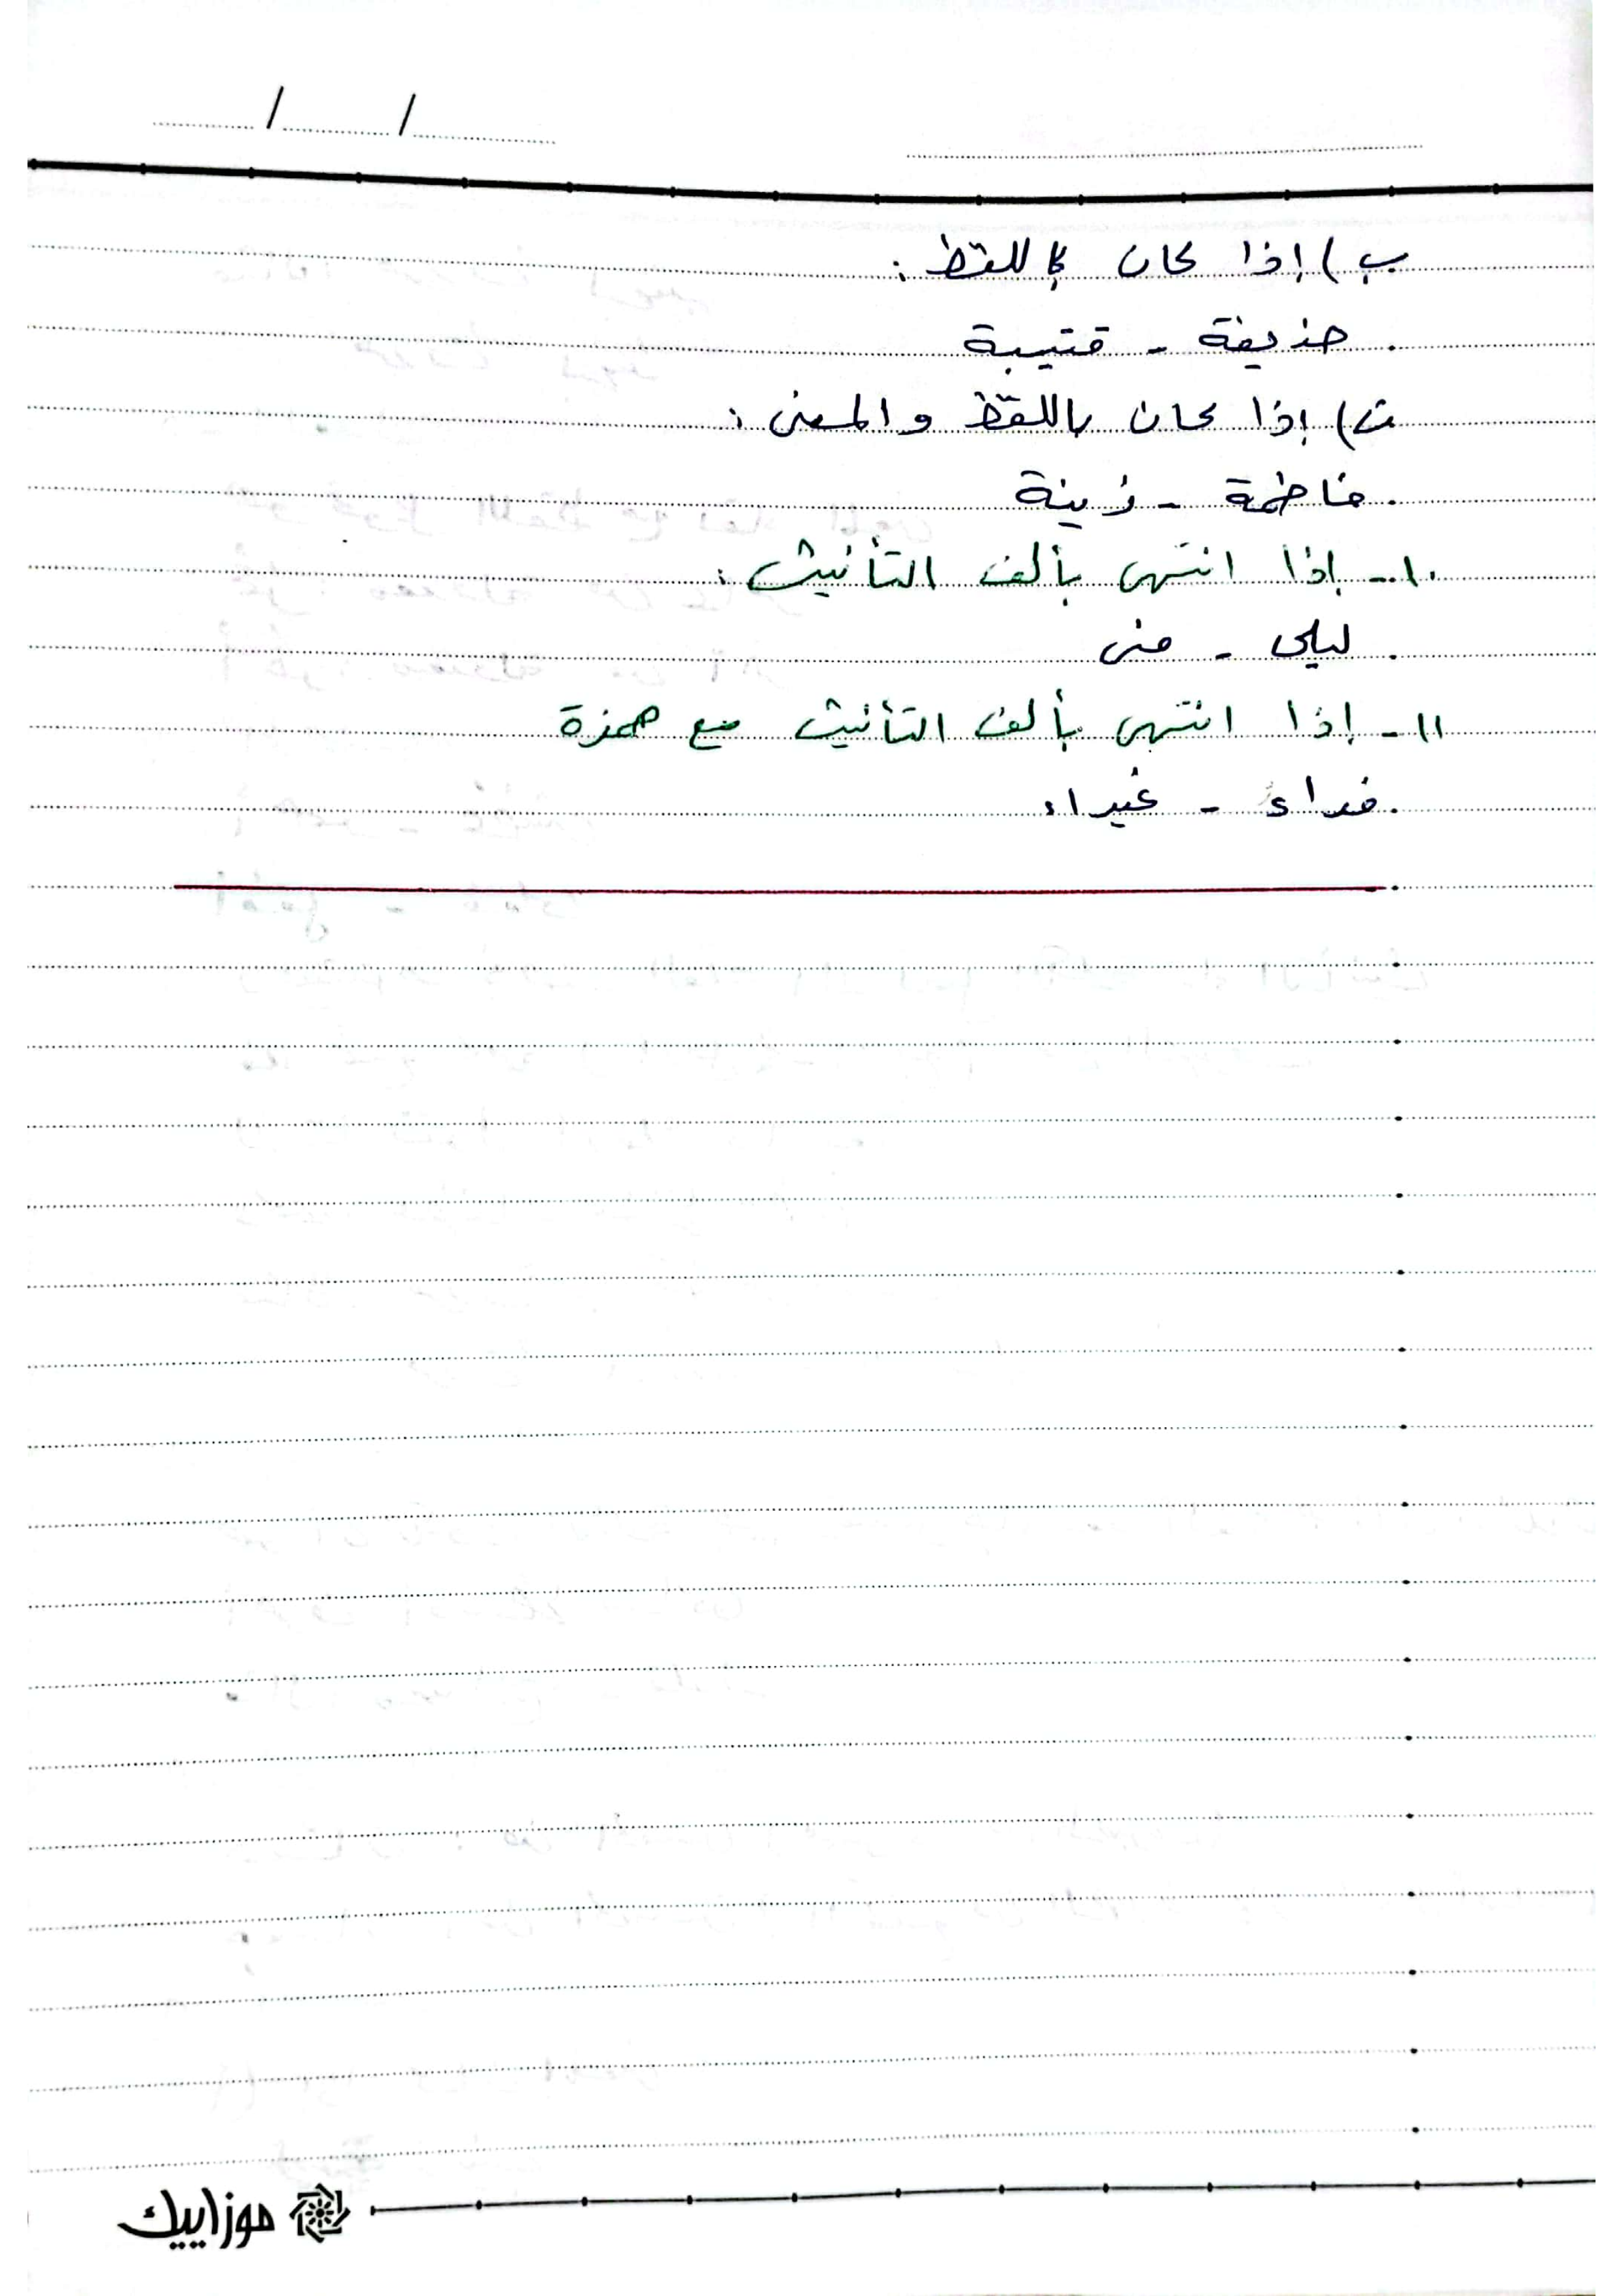 / /
ب) إذا كان باللفظ :
حذيفة - قتيبة
ت) إذا كان باللفظ والمعنى :
فاطمة - زينة
١٠- إذا انتهى بألف التأنيث :
ليلى - منى
١١- إذا انتهى بألف التأنيث مع همزة
فداء - غيداء
موزاييك